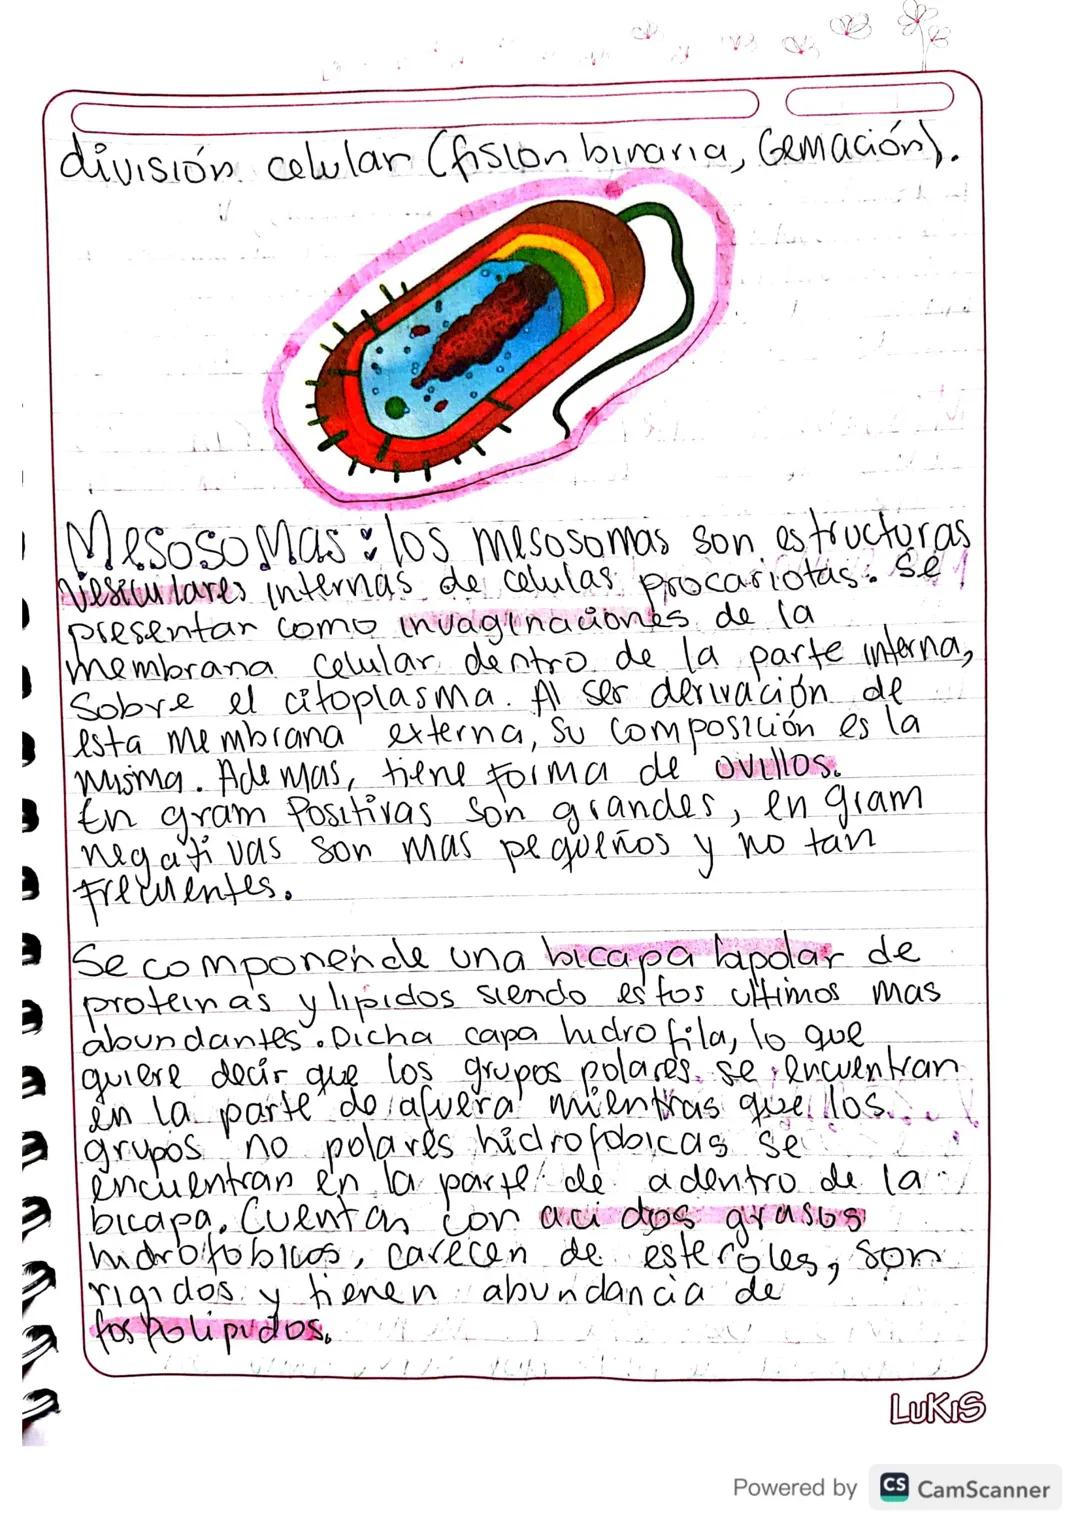 división celular (fision binaria, Gemación).
Mesosomas: los mesosomas son estructuras
vesiculares internas de celulas procariotas. Se
presentan como invaginaciones de la
membrana celular dentro de la parte interna,
Sobre el citoplasma. Al ser derivación de
esta membrana externa, su composición es la
misma. Ademas, tiene forma de ovillos.
En gram Positivas son grandes, en gram
negativas son mas pequeños y no tan
frecuentes.
Se componen de una bicapa bapolar de
proteinas y lipidos siendo estos ultimos mas
abundantes. Dicha capa hidrofila, lo que
quiere decir que los grupos polares se encuentran
en la parte de afuera mientras que los
grupos no polares hidrofobicas se
encuentran en la parte de adentro de la
bicapa. Cuentan con acidos grasos
hidrofobicos, carecen de esteroles, son
rigidos y tienen abundancia de
fosfolipidos.
LUKIS
Powered by CS CamScanner